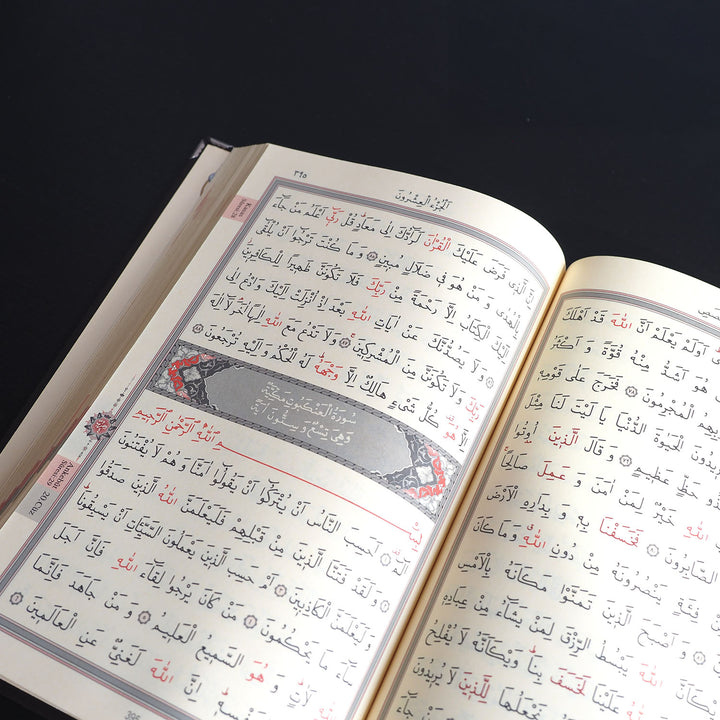 اَوَلَمْ يَعْلَمْ اَنَّ اللّٰهَ قَدْ اَهْلَكَ
هُوَ اَشَدُّ مِنْهُ قُوَّةً وَ اَكْثَرُ
الْمُجْرِمُونَ ﴿٧٨﴾ فَخَرَجَ عَلٰى قَوْمِهِ
يُرِيدُونَ الْحَيٰوةَ الدُّنْيَا يَا لَيْتَ لَنَا مِثْلَ
حَظٍّ عَظِيمٍ ﴿٧٩﴾ وَ قَالَ الَّذِينَ اُوتُوا
اللّٰهِ خَيْرٌ لِمَنْ اٰمَنَ وَ عَمِلَ صَالِحًا
الصَّابِرُونَ ﴿٨٠﴾ فَخَسَفْنَا بِهِ وَ بِدَارِهِ الْاَرْضَ
فِئَةٍ يَنْصُرُونَهُ مِنْ دُونِ اللّٰهِ وَمَا كَانَ
وَ اَصْبَحَ الَّذِينَ تَمَنَّوْا مَكَانَهُ بِالْاَمْسِ
اللّٰهَ يَبْسُطُ الرِّزْقَ لِمَنْ يَشَاءُ مِنْ عِبَادِهِ
اللّٰهُ عَلَيْنَا لَخَسَفَ بِنَا وَيْكَاَنَّهُ لَا يُفْلِحُ
نَجْعَلُهَا لِلَّذِينَ لَا يُرِيدُونَ
اَلْجُزْءُ الْعِشْرُونَ
٣٩٥
اِنَّ الَّذِي فَرَضَ عَلَيْكَ الْقُرْاٰنَ لَرَادُّكَ اِلٰى مَعَادٍ قُلْ رَبِّي اَعْلَمُ مَنْ جَاءَ
بِالْهُدٰى وَ مَنْ هُوَ فِي ضَلَالٍ مُبِينٍ ﴿٨٥﴾ وَ مَا كُنْتَ تَرْجُوا اَنْ يُلْقٰى
اِلَيْكَ الْكِتَابُ اِلَّا رَحْمَةً مِنْ رَبِّكَ فَلَا تَكُونَنَّ ظَهِيرًا لِلْكَافِرِينَ ﴿٨٦﴾
وَ لَا يَصُدُّنَّكَ عَنْ اٰيَاتِ اللّٰهِ بَعْدَ اِذْ اُنْزِلَتْ اِلَيْكَ وَ ادْعُ اِلٰى
رَبِّكَ وَ لَا تَكُونَنَّ مِنَ الْمُشْرِكِينَ ﴿٨٧﴾ وَ لَا تَدْعُ مَعَ اللّٰهِ اِلٰهًا اٰخَرَ لَا اِلٰهَ
اِلَّا هُوَ كُلُّ شَيْءٍ هَالِكٌ اِلَّا وَجْهَهُ لَهُ الْحُكْمُ وَ اِلَيْهِ تُرْجَعُونَ ﴿٨٨﴾
سُورَةُ الْعَنْكَبُوتِ مَكِّيَّةٌ
وَهِيَ تِسْعٌ وَ سِتُّونَ اٰيَةً
بِسْمِ اللّٰهِ الرَّحْمٰنِ الرَّحِيمِ
الٓمٓ ﴿١﴾ اَحَسِبَ النَّاسُ اَنْ يُتْرَكُوا اَنْ يَقُولُوا اٰمَنَّا وَ هُمْ لَا يُفْتَنُونَ
﴿٢﴾ وَ لَقَدْ فَتَنَّا الَّذِينَ مِنْ قَبْلِهِمْ فَلَيَعْلَمَنَّ اللّٰهُ الَّذِينَ صَدَقُوا
وَ لَيَعْلَمَنَّ الْكَاذِبِينَ ﴿٣﴾ اَمْ حَسِبَ الَّذِينَ يَعْمَلُونَ السَّيِّاٰتِ اَنْ يَسْبِقُونَا
سَاءَ مَا يَحْكُمُونَ ﴿٤﴾ مَنْ كَانَ يَرْجُوا لِقَاءَ اللّٰهِ فَاِنَّ اَجَلَ
اللّٰهِ لَاٰتٍ وَ هُوَ السَّمِيعُ الْعَلِيمُ ﴿٥﴾ وَ مَنْ جَاهَدَ فَاِنَّمَا
لِنَفْسِهِ اِنَّ اللّٰهَ لَغَنِيٌّ عَنِ الْعَالَمِينَ ﴿٦﴾
Kasas
Sûresi 28
Ankebût
Sûresi 29
20.Cüz
395